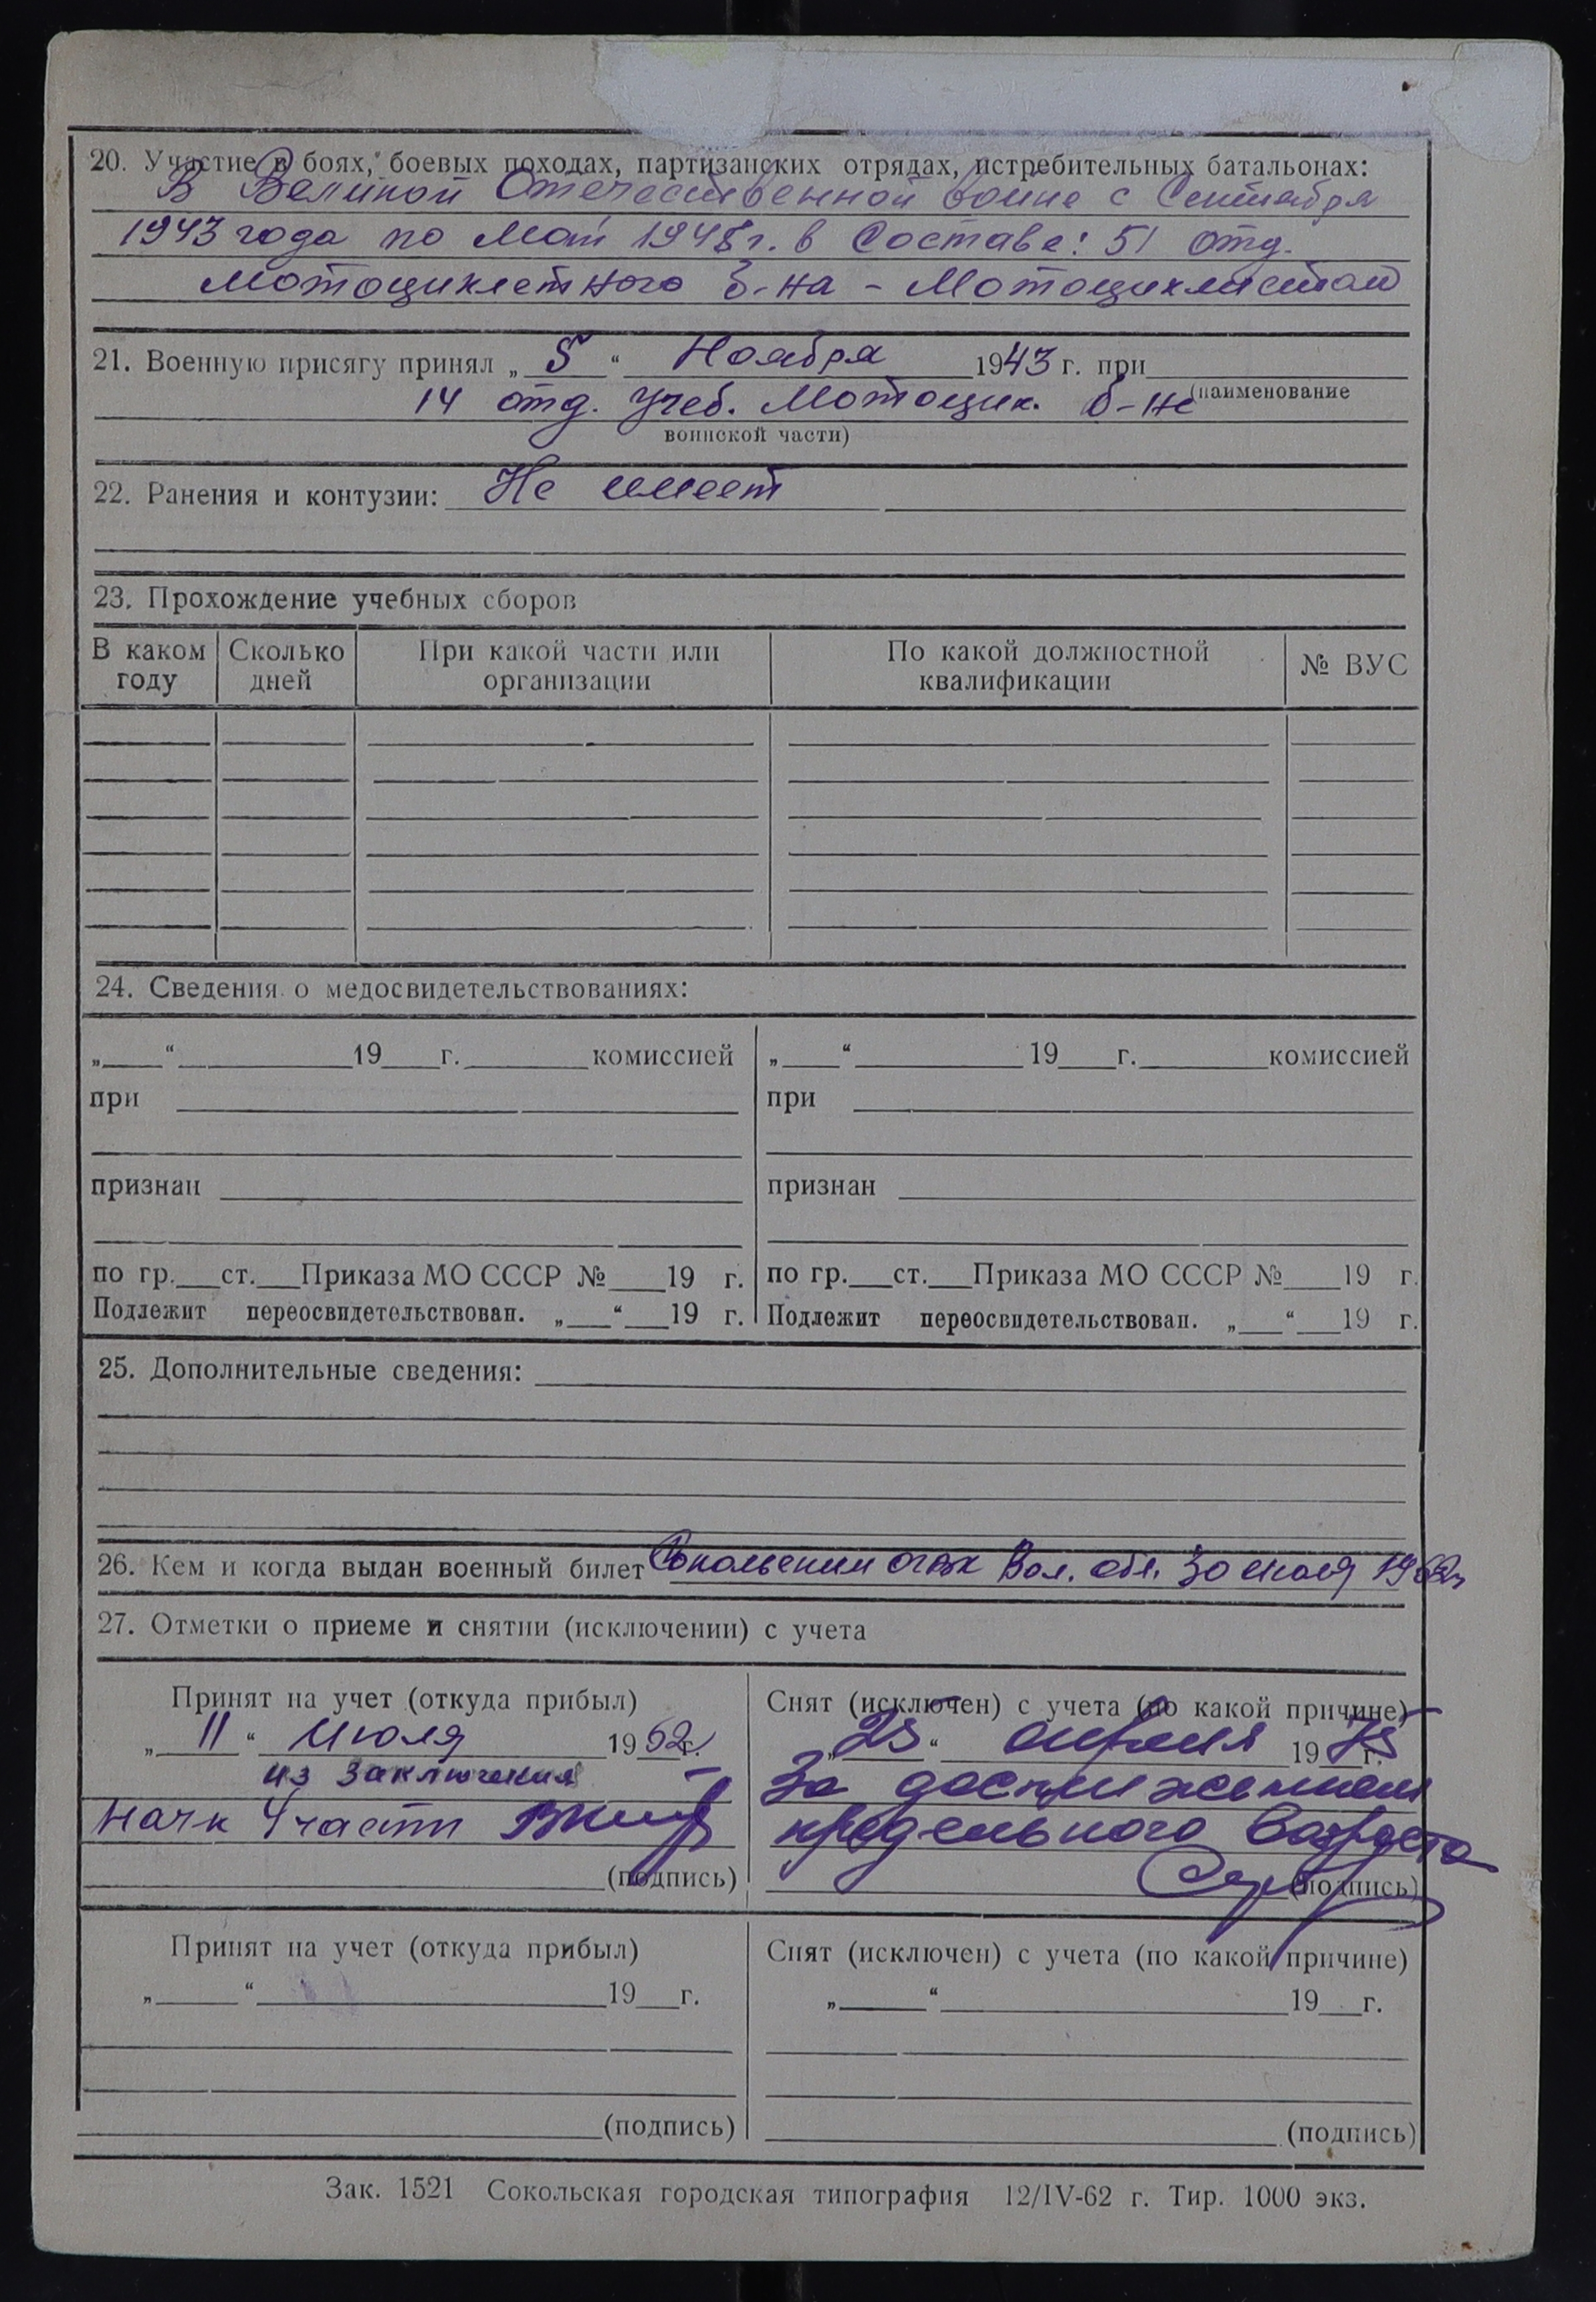 20. Участие в боях, боевых походах, партизанских отрядах, истребительных батальонах:
В Великой Отечественной войне с Сентября
1943 года по Май 1945 г. в Составе: 51 отд.
Мотоциклетного б-на - Мотоциклистом
21. Военную присягу принял „ 5 “ Ноября 1943 г. при
14 отд. учеб. Мотоцик. б-не (наименование
воинской части)
22. Ранения и контузии: Не имеет
23. Прохождение учебных сборов
В каком году Сколько дней При какой части или организации По какой должностной квалификации № ВУС
24. Сведения о медосвидетельствованиях:
„ “ 19 г. комиссией „ “ 19 г. комиссией
при при
признан признан
по гр. ст. Приказа МО СССР № 19 г. по гр. ст. Приказа МО СССР № 19 г.
Подлежит переосвидетельствован. „ “ 19 г. Подлежит переосвидетельствован. „ “ 19 г.
25. Дополнительные сведения:
26. Кем и когда выдан военный билет Сокольским Вол. обл. 30 июля 1962г
27. Отметки о приеме и снятии (исключении) с учета
Принят на учет (откуда прибыл)
„ 11 “ Июля 1962 г.
из заключения
Начк 4 части
(подпись)
Снят (исключен) с учета (по какой причине)
„ 25 “ апреля 1975 г.
За достижением
предельного возраста
(подпись)
Принят на учет (откуда прибыл) Снят (исключен) с учета (по какой причине)
„ “ 19 г. „ “ 19 г.
(подпись) (подпись)
Зак. 1521 Сокольская городская типография 12/IV-62 г. Тир. 1000 экз.